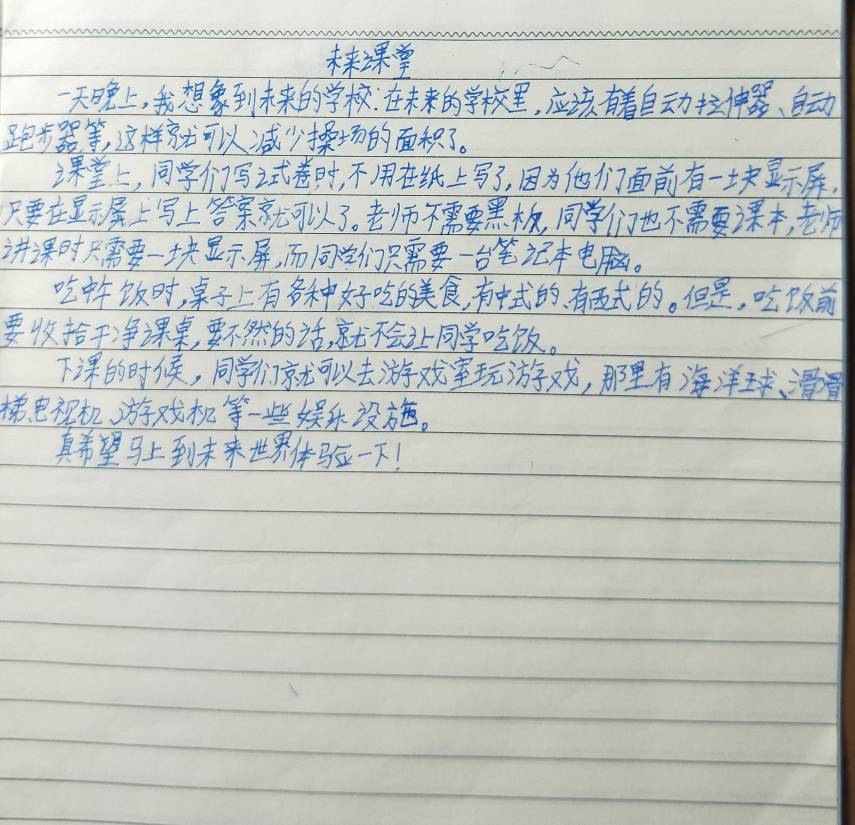 未来课堂
一天晚上,我想象到未来的学校:在未来的学校里,应该有着自动拉伸器、自动
跑步器等,这样就可以减少操场的面积了。
课堂上,同学们写试卷时,不用在纸上写了,因为他们面前有一块显示屏,
只要在显示屏上写上答案就可以了。老师不需要黑板,同学们也不需要课本,老师
讲课时只需要一块显示屏,而同学们只需要一台笔记本电脑。
吃午饭时,桌子上有各种好吃的美食,有中式的、有西式的。但是,吃饭前
要收拾干净课桌,要不然的话,就不会让同学吃饭。
下课的时候,同学们就可以去游戏室玩游戏,那里有海洋球、滑滑
梯、电视机、游戏机等一些娱乐设施。
真希望马上到未来世界体验一下!